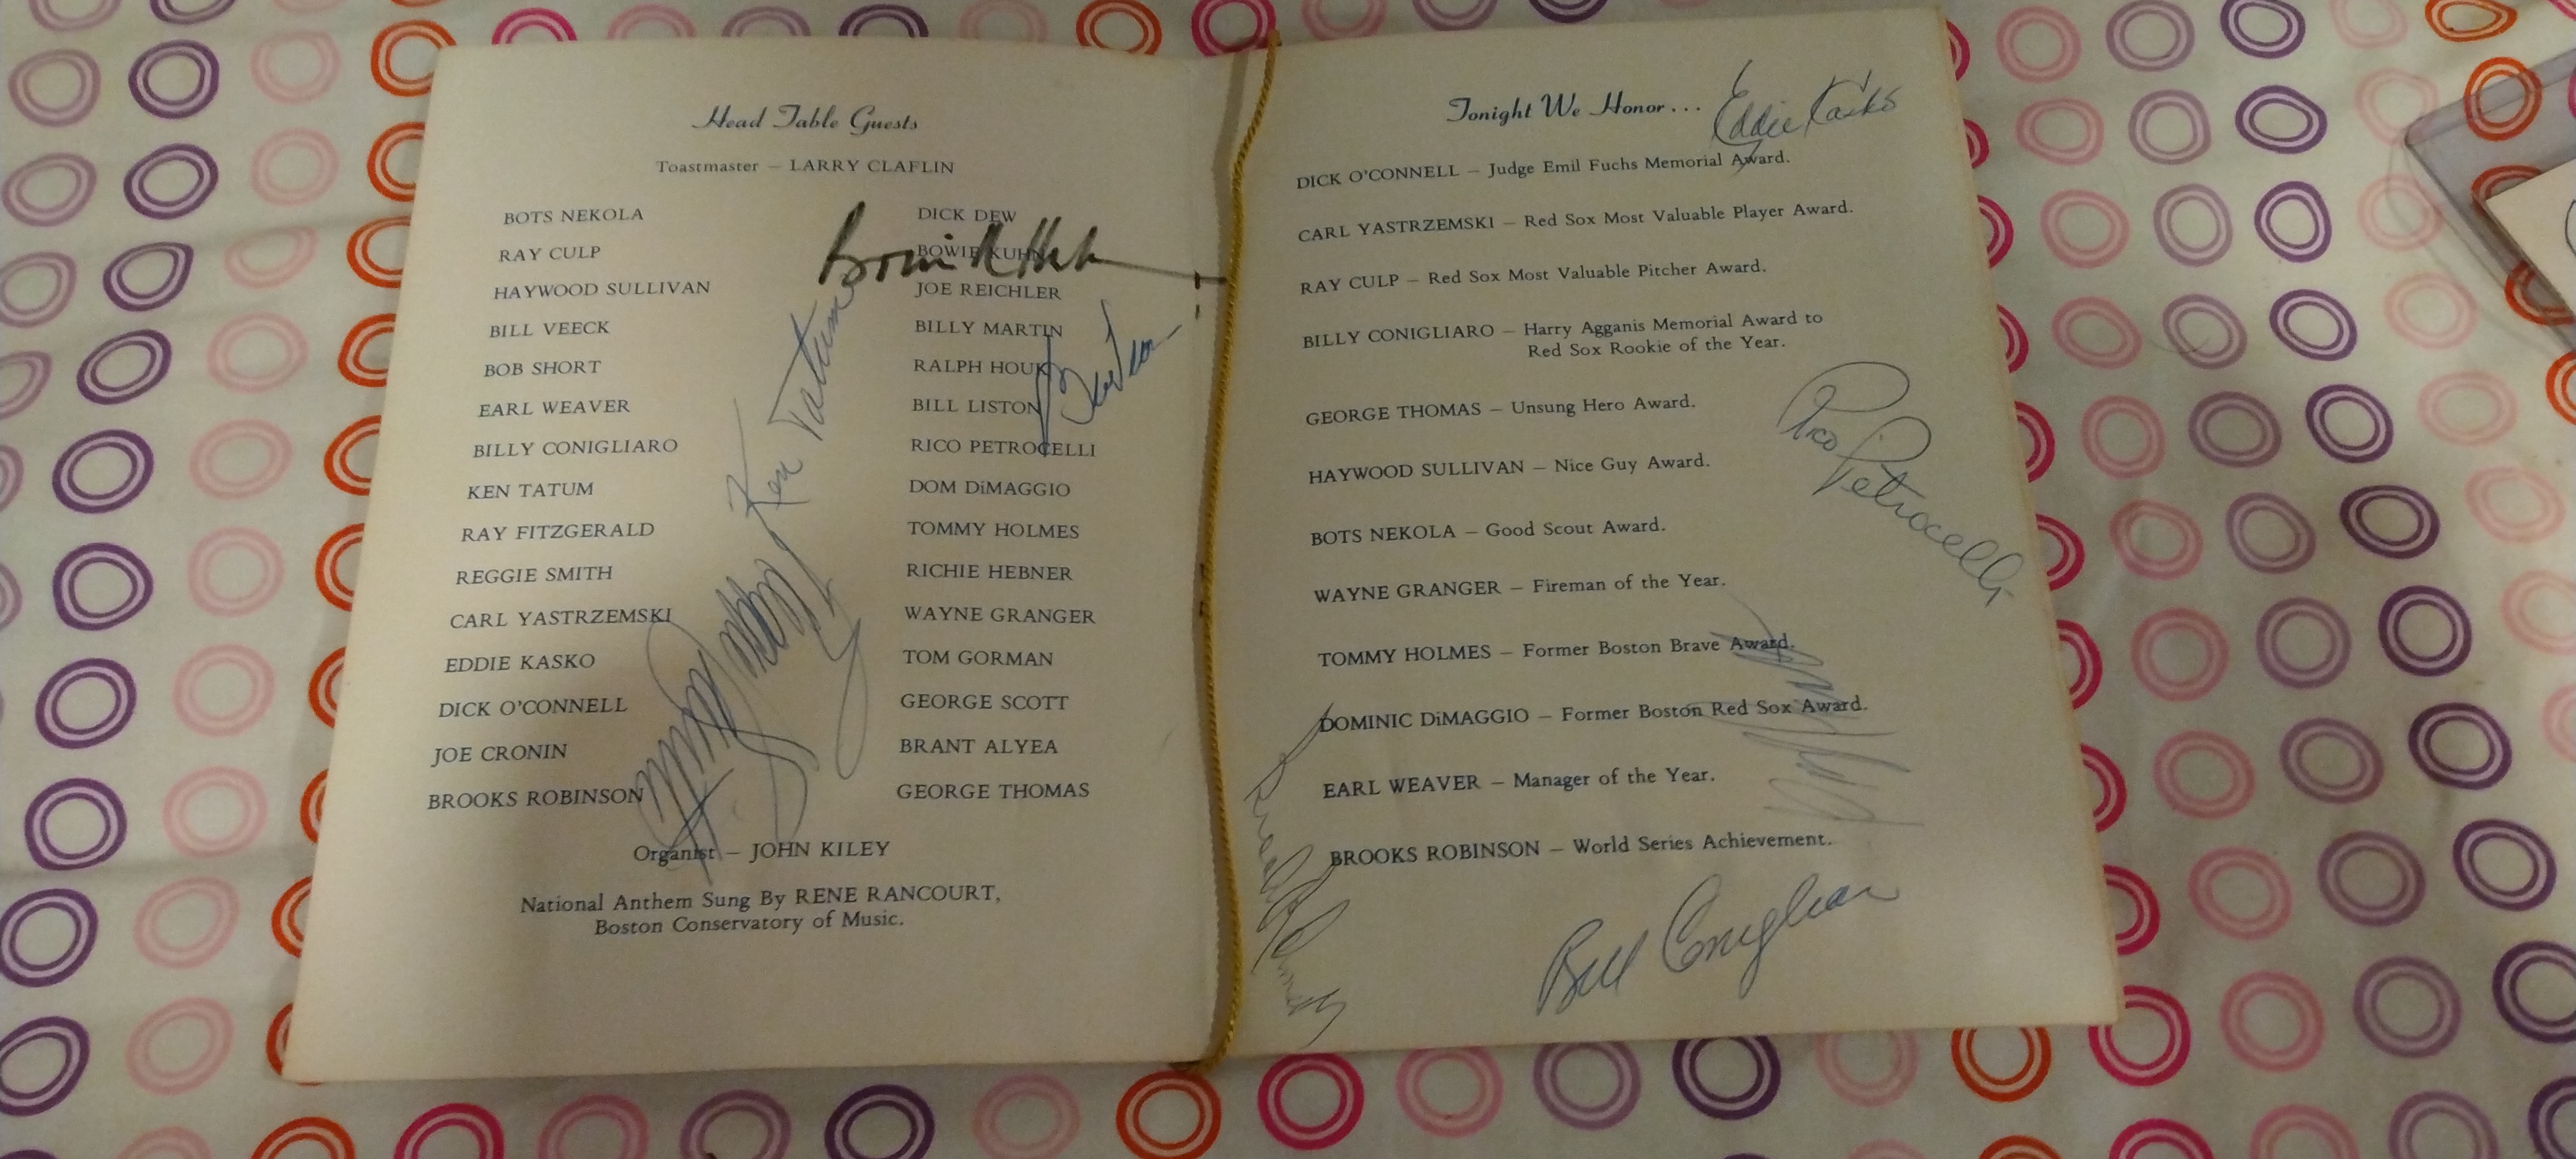 Head Table Guests
Toastmaster – LARRY CLAFLIN
BOTS NEKOLA
RAY CULP
HAYWOOD SULLIVAN
BILL VEECK
BOB SHORT
EARL WEAVER
BILLY CONIGLIARO
KEN TATUM
RAY FITZGERALD
REGGIE SMITH
CARL YASTRZEMSKI
EDDIE KASKO
DICK O'CONNELL
JOE CRONIN
BROOKS ROBINSON
DICK DEW
BOWIE KUHN
JOE REICHLER
BILLY MARTIN
RALPH HOUK
BILL LISTON
RICO PETROCELLI
DOM DiMAGGIO
TOMMY HOLMES
RICHIE HEBNER
WAYNE GRANGER
TOM GORMAN
GEORGE SCOTT
BRANT ALYEA
GEORGE THOMAS
Ken Tatum
Organist – JOHN KILEY
National Anthem Sung By RENE RANCOURT,
Boston Conservatory of Music.
Tonight We Honor...
Eddie Kasko
DICK O'CONNELL – Judge Emil Fuchs Memorial Award.
CARL YASTRZEMSKI – Red Sox Most Valuable Player Award.
RAY CULP – Red Sox Most Valuable Pitcher Award.
BILLY CONIGLIARO – Harry Agganis Memorial Award to
Red Sox Rookie of the Year.
GEORGE THOMAS – Unsung Hero Award.
Rico Petrocelli
HAYWOOD SULLIVAN – Nice Guy Award.
BOTS NEKOLA – Good Scout Award.
WAYNE GRANGER – Fireman of the Year.
TOMMY HOLMES – Former Boston Brave Award.
DOMINIC DiMAGGIO – Former Boston Red Sox Award.
EARL WEAVER – Manager of the Year.
BROOKS ROBINSON – World Series Achievement.
Bill Conigliaro